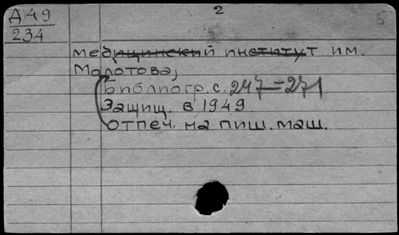 Д 49
234
2
5
медицинский институт им.
Молотова,
Библиогр. с. 247-271
Защищ. в 1949
отпеч. на пиш. маш.